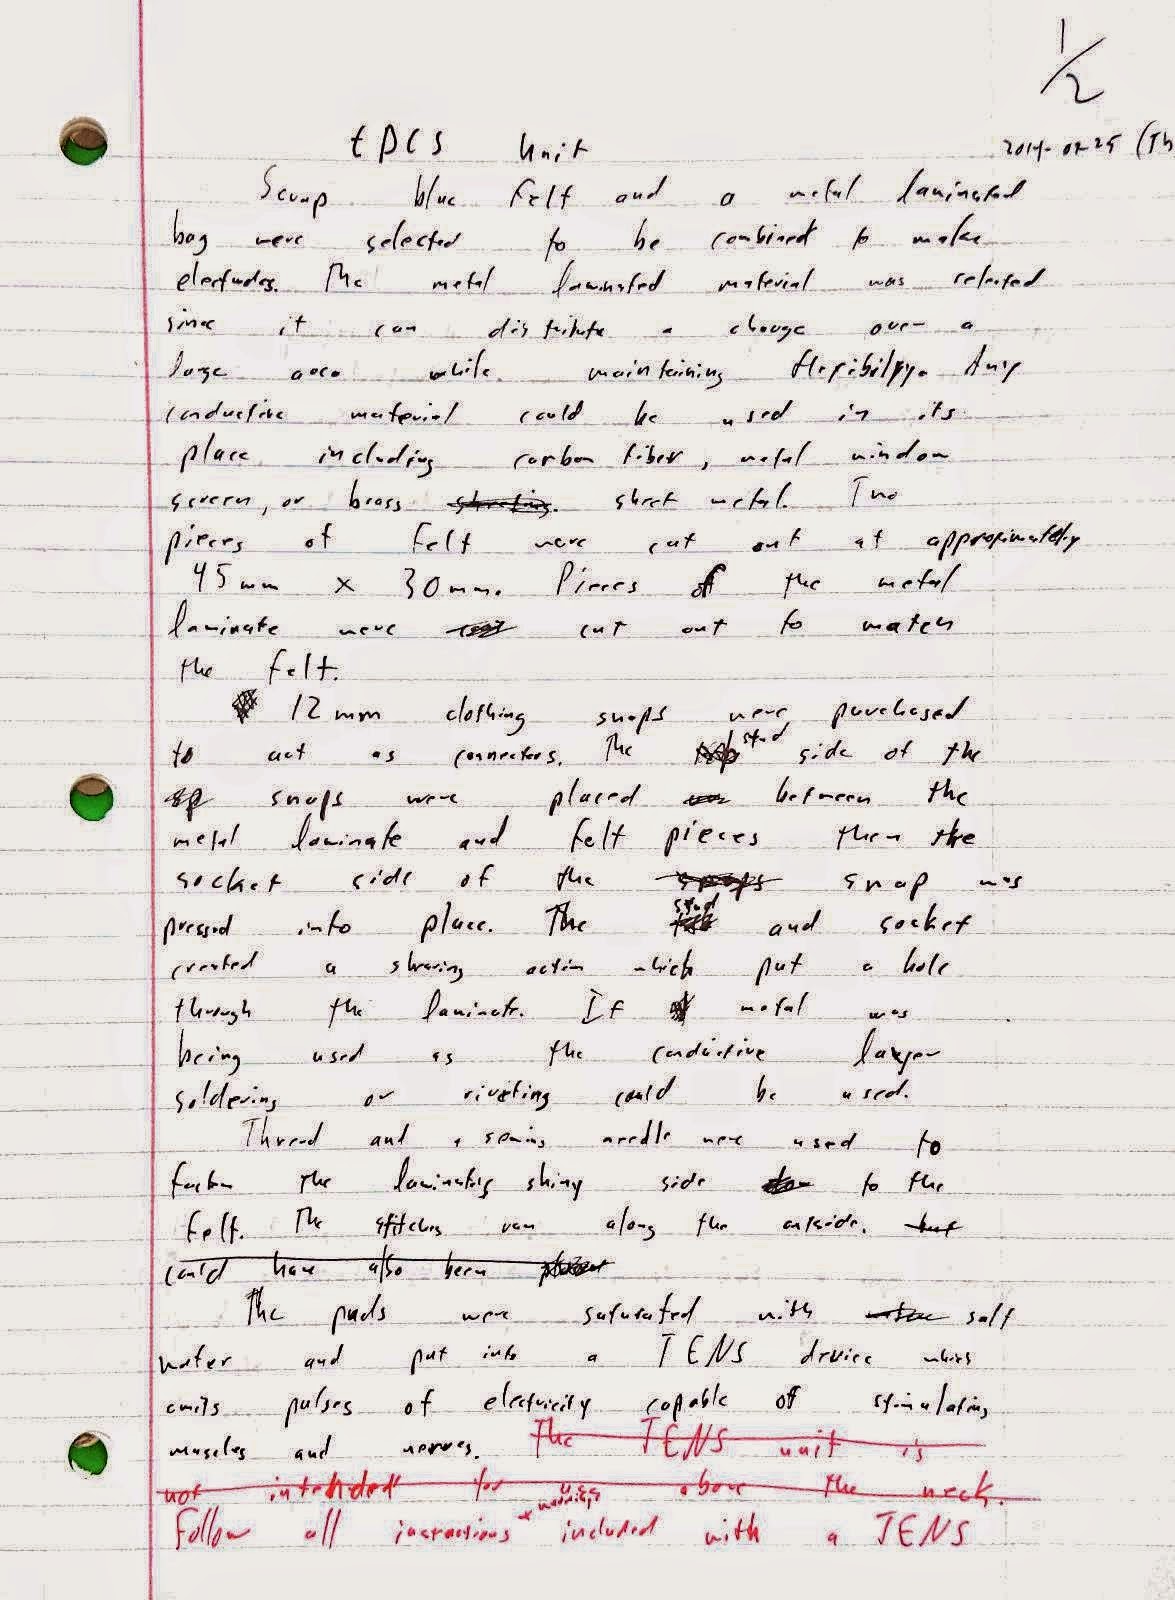 1/2
tDCS Unit
2014-09-25 (Th
Scrap blue felt and a metal laminated
bag were selected to be combined to make
electrodes. The metal laminated material was selected
since it can distribute a charge over a
large area while maintaining flexibility. Any
conductive material could be used in its
place including carbon fiber, metal window
screen, or brass sheet metal. Two
pieces of felt were cut out at approximately
45mm x 30mm. Pieces of the metal
laminate were cut out to match
the felt.
12mm clothing snaps were purchased
to act as connectors. The stud side of the
snaps were placed between the
metal laminate and felt pieces then the
socket side of the snaps snap was
pressed into place. The stud and socket
created a shearing action which put a hole
through the laminate. If metal was
being used as the conductive layer
soldering or riveting could be used.
Thread and a sewing needle were used to
fasten the laminates shiny side to the
felt. The stitches ran along the outside. but
could have also been
The pads were saturated with salt
water and put into a TENS device which
emits pulses of electricity capable of stimulating
muscles and nerves. The TENS unit is
not intended for use above the neck.
Follow all instructions + warnings included with a TENS